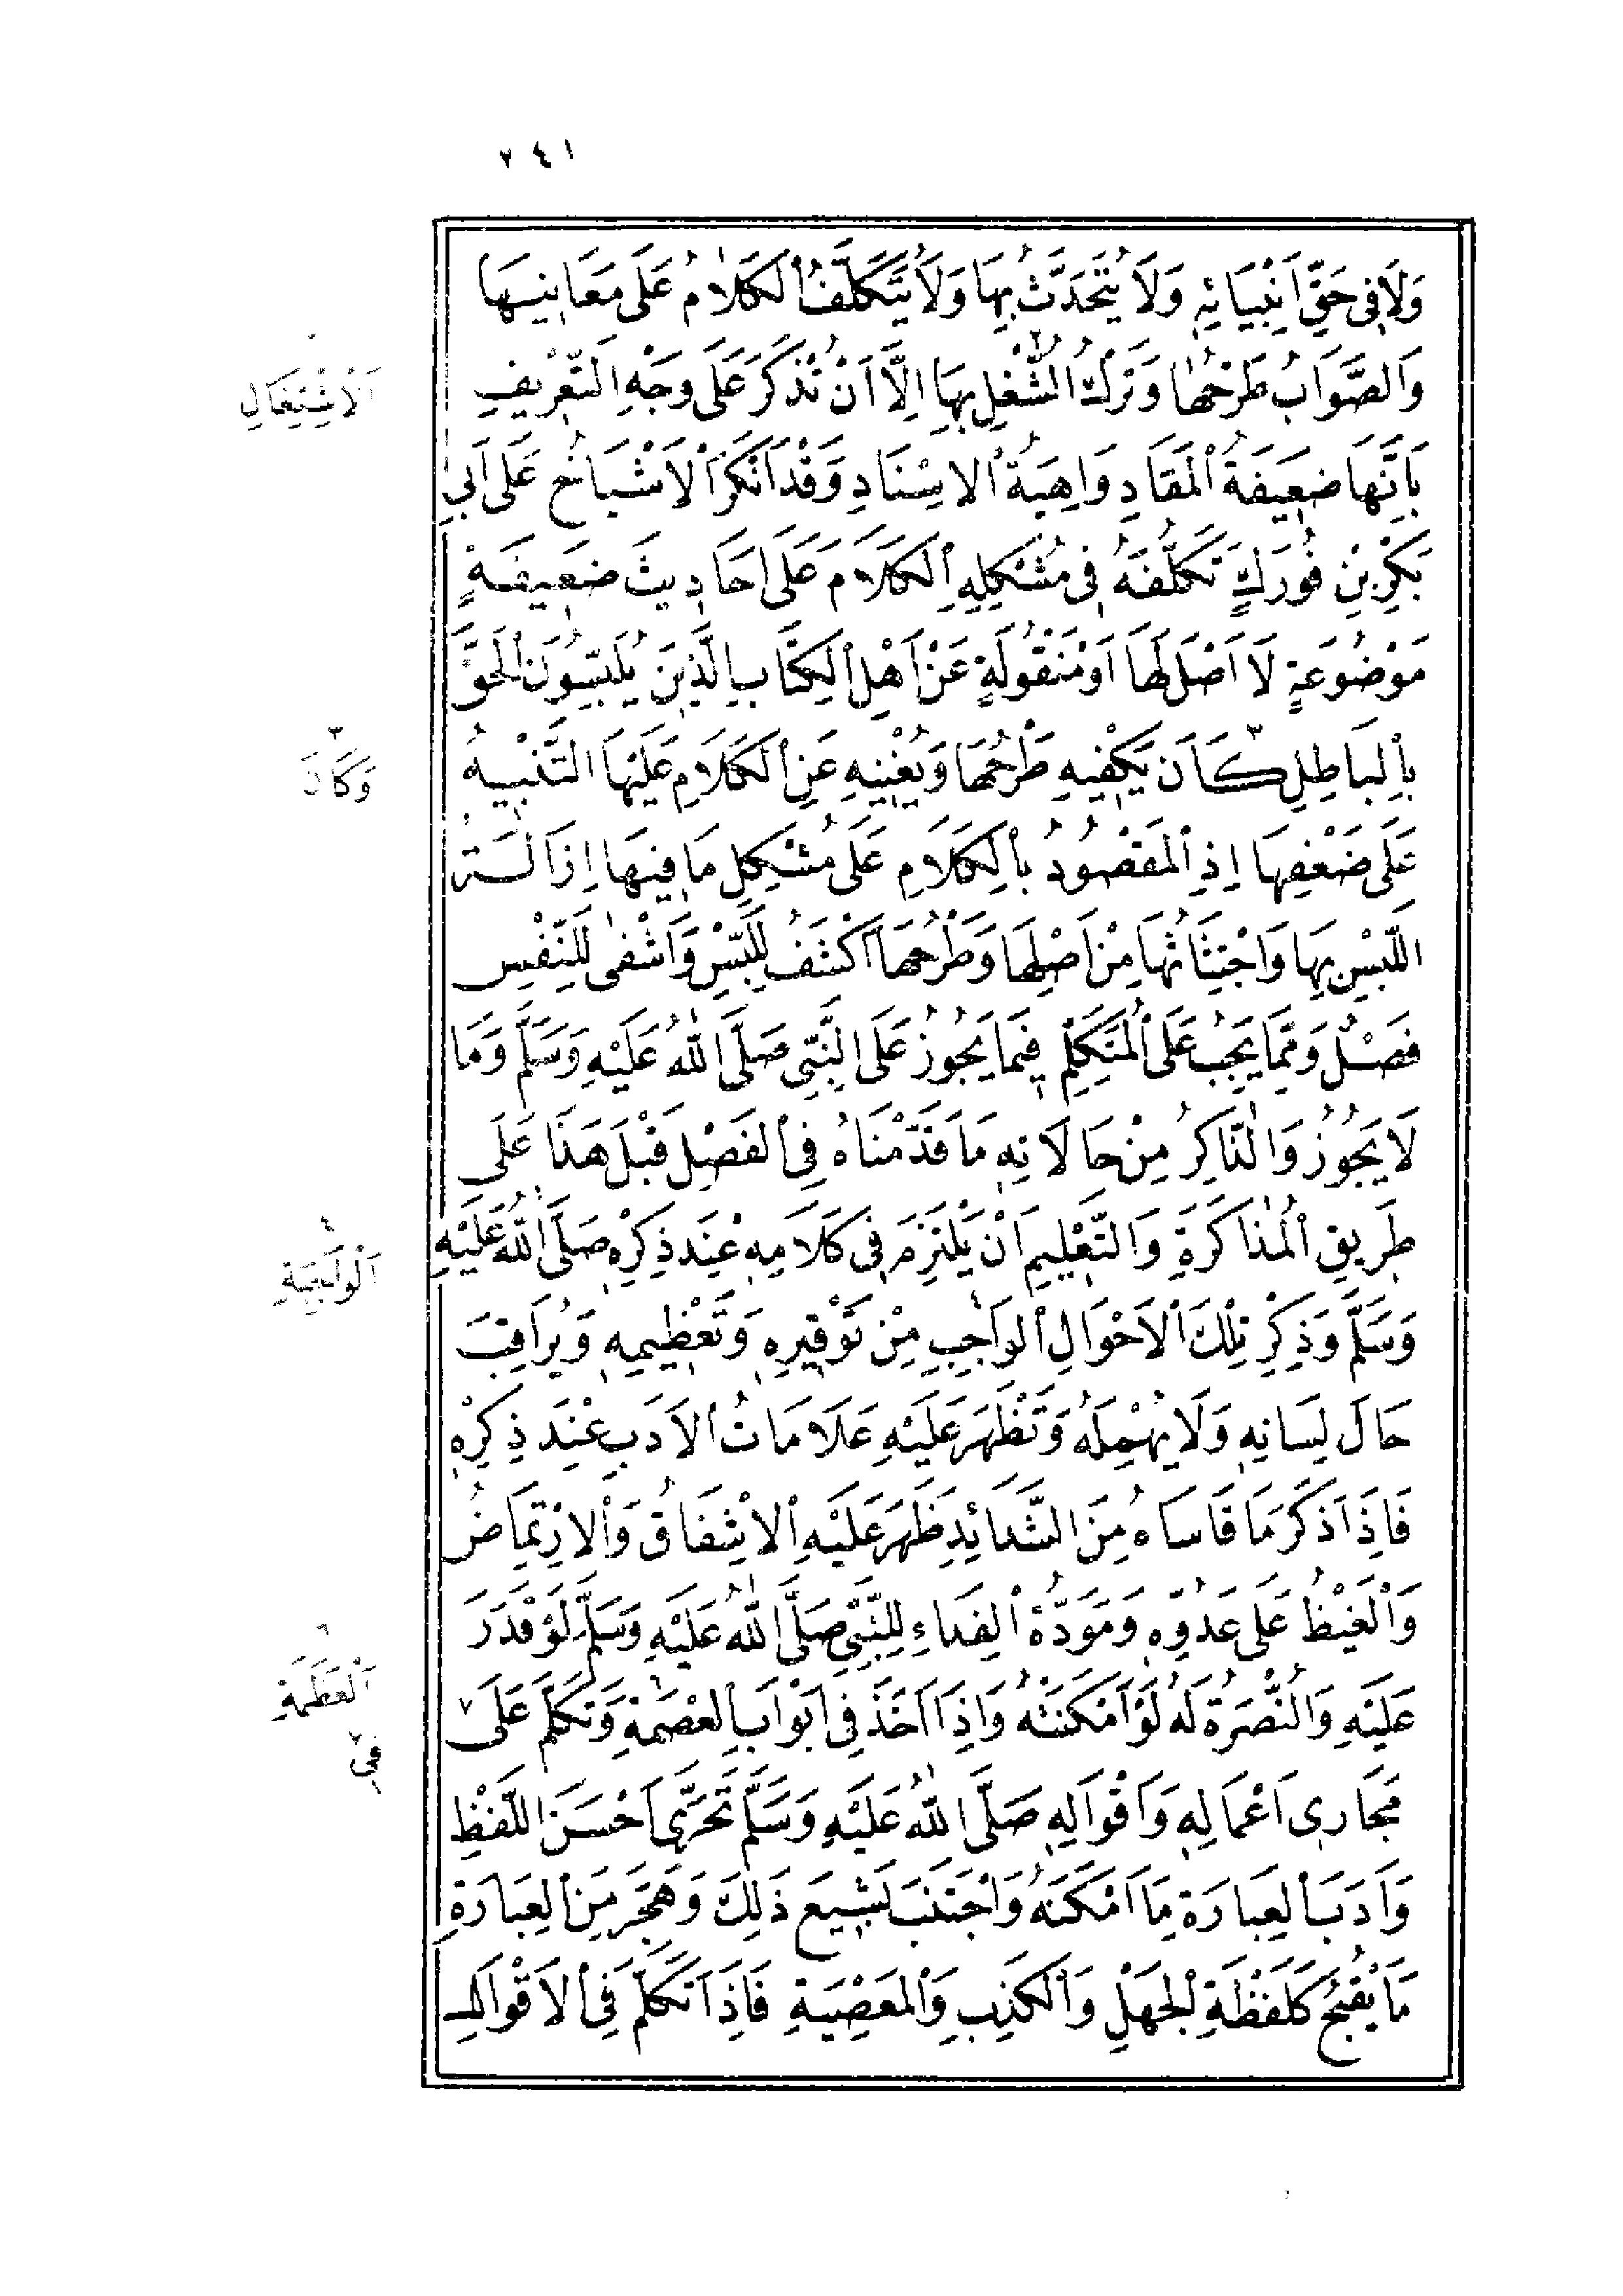 ٢٤١
وَلَا فِى حَقِّ اَنْبِيَائِهِ وَلَا يُتَحَدَّثُ بِهَا وَلَا يُتَكَلَّفُ الْكَلَامُ عَلَى مَعَانِيهَا
وَالصَّوَابُ طَرْحُهَا وَتَرْكُ الشُّغْلِ بِهَا اِلَّا اَنْ تُذْكَرَ عَلَى وَجْهِ التَّعْرِيفِ
بِاَنَّهَا ضَعِيفَةُ الْمَقَادِ وَاهِيَةُ الْاِسْنَادِ وَقَدْ اَنْكَرَ الْاَشْيَاخُ عَلَى اَبِى
بَكْرِ بْنِ فُورَكٍ تَكَلُّفَهُ فِى مُشْكِلِهِ الْكَلَامَ عَلَى اَحَادِيثَ ضَعِيفَةٍ
مَوْضُوعَةٍ لَا اَصْلَ لَهَا اَوْ مَنْقُولَةٍ عَنْ اَهْلِ الْكِتَابِ الَّذِينَ يُلَبِّسُونَ الْحَقَّ
بِالْبَاطِلِ كَانَ يَكْفِيهِ طَرْحُهَا وَيُغْنِيهِ عَنِ الْكَلَامِ عَلَيْهَا التَّنْبِيهُ
عَلَى ضَعْفِهَا اِذِ الْمَقْصُودُ بِالْكَلَامِ عَلَى مُشْكِلِ مَا فِيهَا اِزَالَةُ
اللَّبْسِ بِهَا وَاجْتِثَاثُهَا مِنْ اَصْلِهَا وَطَرْحُهَا اَكْشَفُ لِلَّبْسِ وَاَشْفَى لِلنَّفْسِ
فَصْلٌ وَمِمَّا يَجِبُ عَلَى الْمُتَكَلِّمِ فِيمَا يَجُوزُ عَلَى النَّبِىِّ صَلَّى اللهُ عَلَيْهِ وَسَلَّمَ وَمَا
لَا يَجُوزُ وَالذَّاكِرُ مِنْ حَالَاتِهِ مَا قَدَّمْنَاهُ فِى الْفَصْلِ قَبْلَ هَذَا عَلَى
طَرِيقِ الْمُذَاكَرَةِ وَالتَّعْلِيمِ اَنْ يَلْتَزِمَ فِى كَلَامِهِ عِنْدَ ذِكْرِهِ صَلَّى اللهُ عَلَيْهِ
وَسَلَّمَ وَذِكْرِ تِلْكَ الْاَحْوَالِ الْوَاجِبِ مِنْ تَوْقِيرِهِ وَتَعْظِيمِهِ وَيُرَاقِبَ
حَالَ لِسَانِهِ وَلَا يُهْمِلَهُ وَتَظْهَرَ عَلَيْهِ عَلَامَاتُ الْاَدَبِ عِنْدَ ذِكْرِهِ
فَاِذَا ذَكَرَ مَا قَاسَاهُ مِنَ الشَّدَائِدِ ظَهَرَ عَلَيْهِ الْاِشْفَاقُ وَالْاِرْتِمَاضُ
وَالْغَيْظُ عَلَى عَدُوِّهِ وَمَوَدَّةُ الْفِدَاءِ لِلنَّبِىِّ صَلَّى اللهُ عَلَيْهِ وَسَلَّمَ لَوْ قَدَرَ
عَلَيْهِ وَالنُّصْرَةُ لَهُ لَوْ اَمْكَنَتْهُ وَاِذَا اَخَذَ فِى اَبْوَابِ الْعِصْمَةِ وَتَكَلَّمَ عَلَى
مَجَارِى اَعْمَالِهِ وَاَقْوَالِهِ صَلَّى اللهُ عَلَيْهِ وَسَلَّمَ تَحَرَّى اَحْسَنَ اللَّفْظِ
وَاَدَبَ الْعِبَارَةِ مَا اَمْكَنَهُ وَاجْتَنَبَ بَشِيعَ ذَلِكَ وَهَجَرَ مِنَ الْعِبَارَةِ
مَا يُقْبَحُ كَلَفْظَةِ الْجَهْلِ وَالْكَذِبِ وَالْمَعْصِيَةِ فَاِذَا تَكَلَّمَ فِى الْاَقْوَالِ
اَلْاِشْتِغَالِ
وَكَانَ
اَلْعَظَمَةِ
فِى